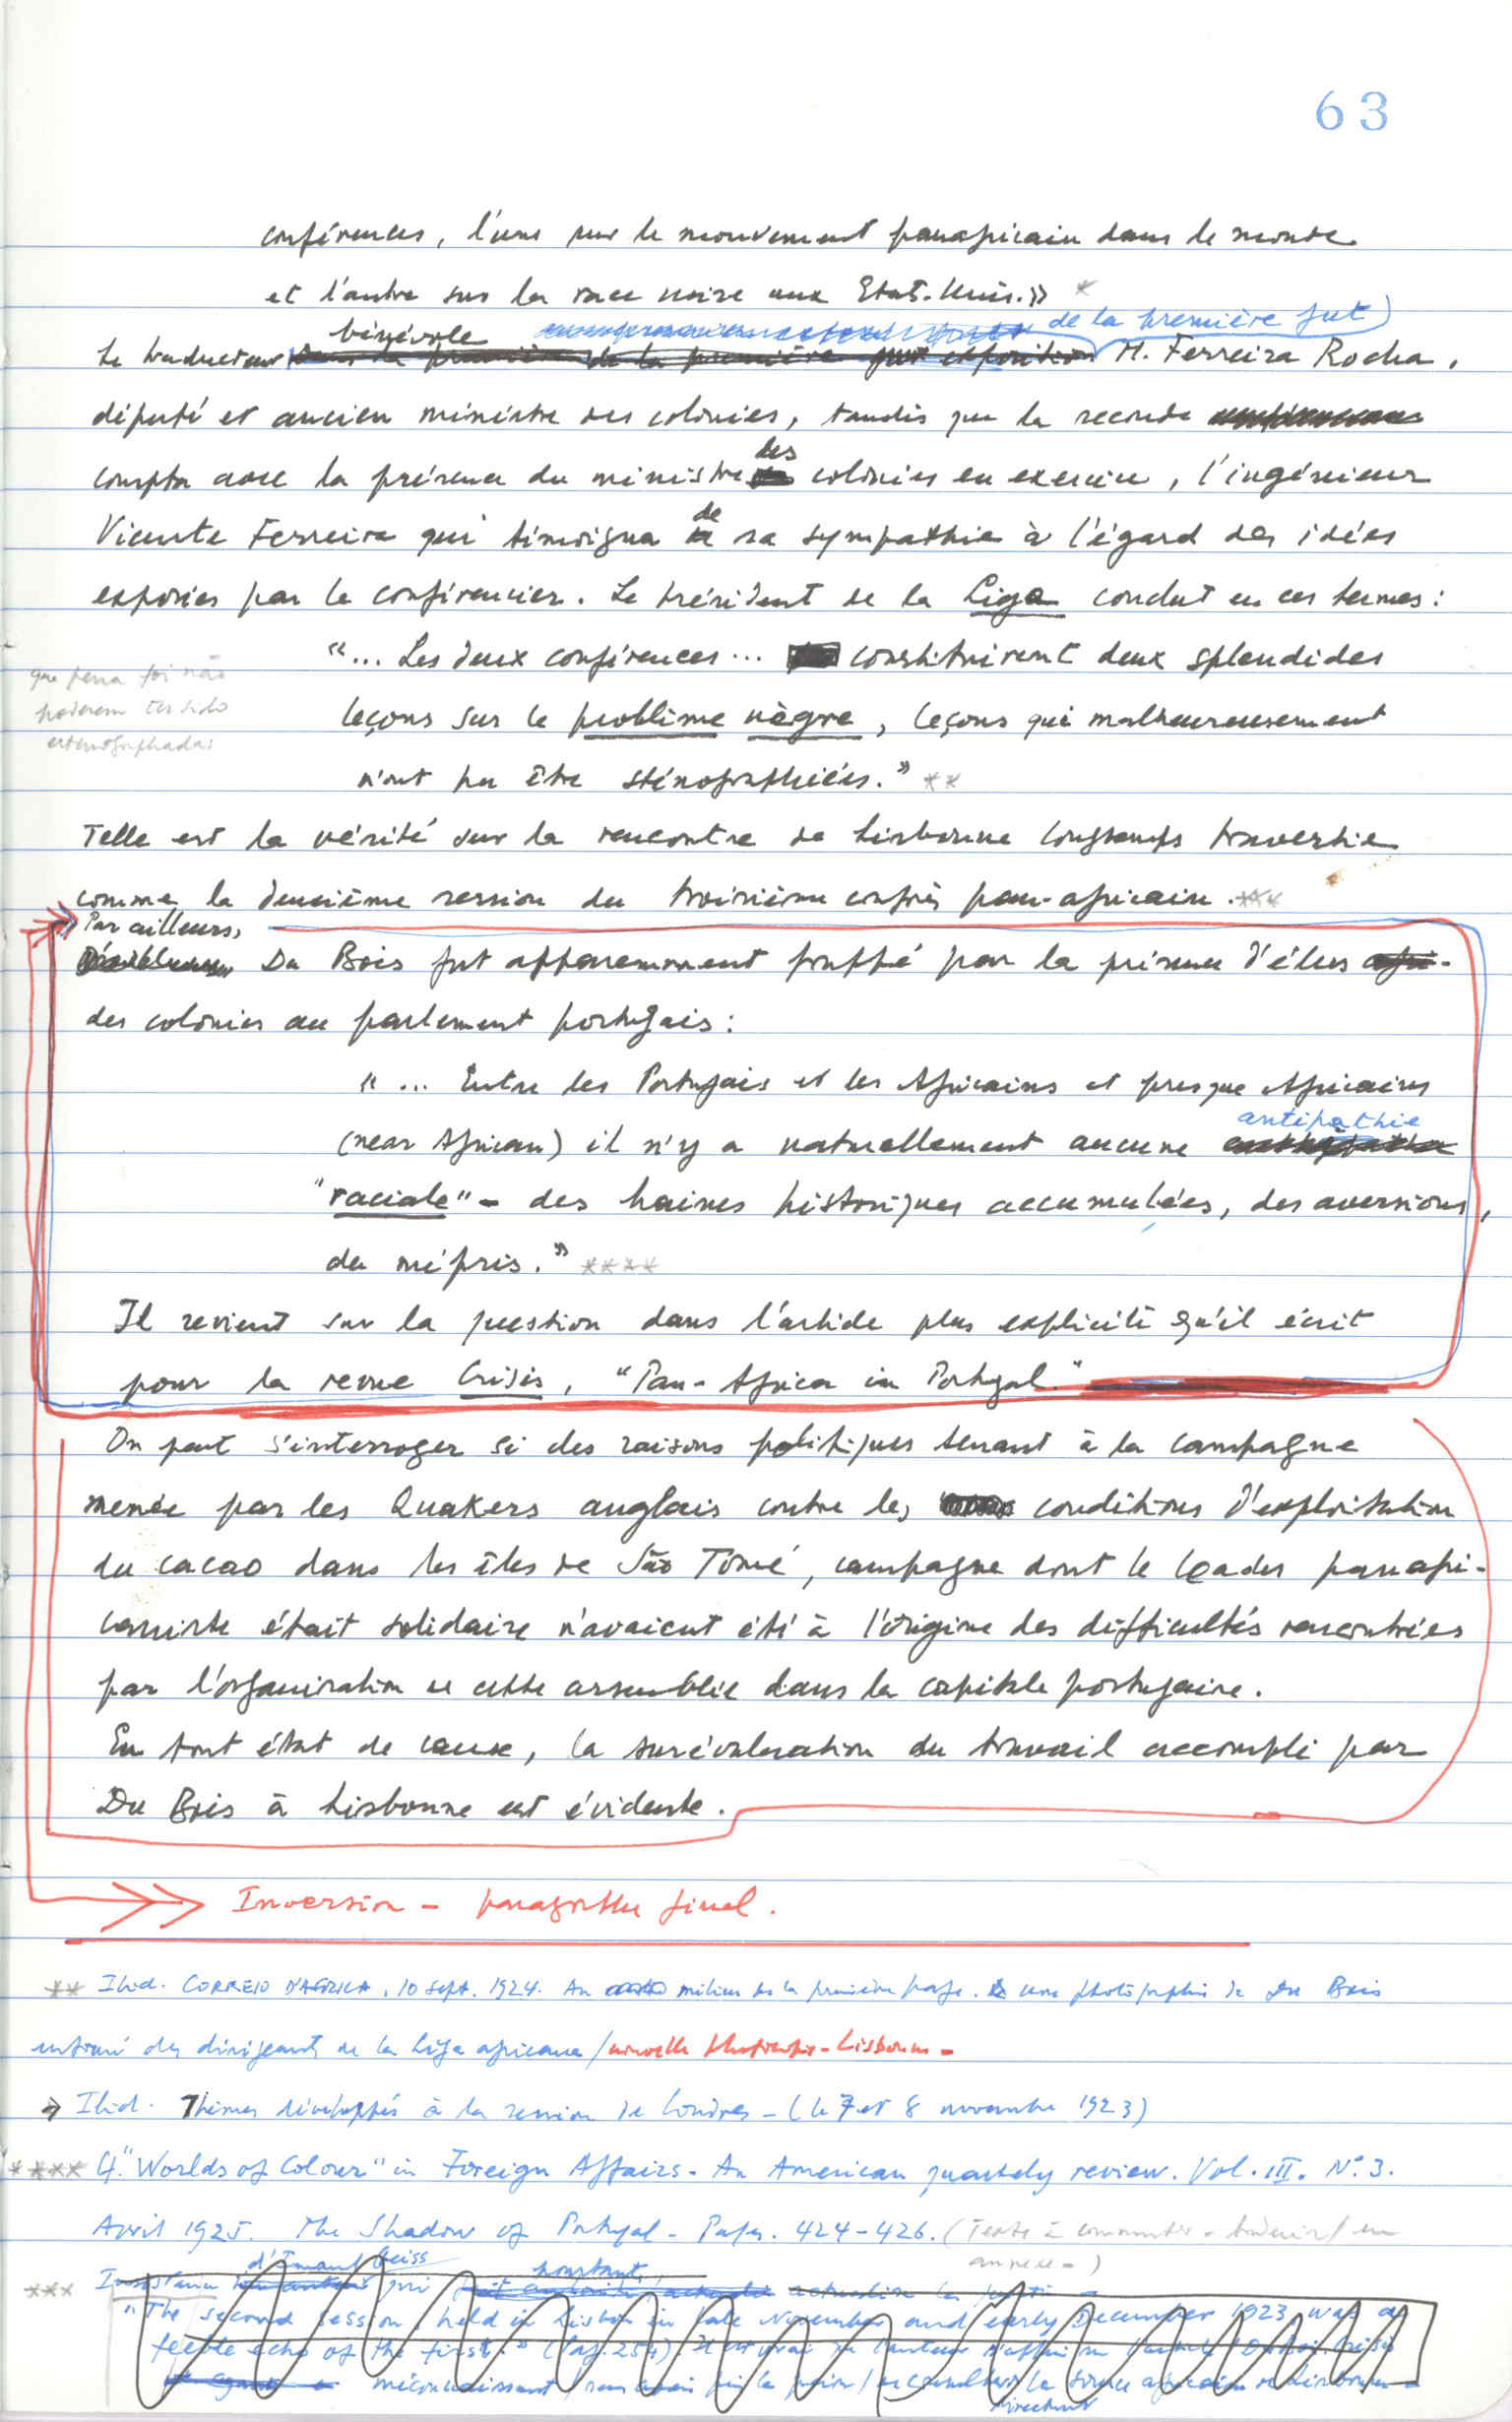 63
conférences, l'une sur le mouvement panafricain dans le monde
et l'autre sur la race noire aux Etats-Unis.» *
bénévole de la première fut
Le traducteur M. Ferreira Rocha,
député et ancien ministre des colonies, tandis que la seconde
des
compta avec la présence du ministre colonies en exercice, l'ingénieur
de
Vicente Ferreira qui témoigna sa sympathie à l'égard des idées
exposées par le conférencier. Le président de la Liga conclut en ces termes :
"... Les deux conférences ... constituirent deux splendides
que pena foi não
leçons sur le problème nègre, leçons qui malheureusement
poderem ter sido
estenografadas
n'ont pu être sténographiées." **
Telle est la vérité sur la rencontre de Lisbonne longtemps travestie
comme la deuxième session du troisième congrès pan-africain. ***
Par ailleurs,
Du Bois fut apparemment frappé par la présence d'élus
des colonies au parlement portugais :
"... Entre les Portugais et les Africains et presque Africains
antipathie
(near African) il n'y a naturellement aucune
"raciale" - des haines historiques accumulées, des aversions,
du mépris." ****
Il revient sur la question dans l'article plus explicite qu'il écrit
pour la revue Crisis, "Pan-Africa in Portugal."
On peut s'interroger si des raisons politiques tenant à la campagne
menée par les Quakers anglais contre les conditions d'exploitation
du cacao dans les îles de São Tomé, campagne dont le leader panafri-
caniste était solidaire n'avaient été à l'origine des difficultés rencontrées
par l'organisation de cette assemblée dans la capitale portugaise.
En tout état de cause, la surévaluation du travail accompli par
Du Bois à Lisbonne est évidente.
Inversion - paragraphe final.
** Ibid. CORREIO D'AFRICA, 10 sept. 1924. Au milieu de la première page. une photographie de Du Bois
entouré des dirigeants de la Liga africana / nouvelle - Lisbonne -
→ Ibid. Thèmes développés à la session de Londres - (le 7 et 8 novembre 1923)
**** Cf. "Worlds of Colour" in Foreign Affairs - An American quarterly review. Vol. III. N° 3.
April 1925. The Shadow of Portugal - Pages. 424-426. (Texte à commenter - en
annexe -)
d'Imanuel Geiss
*** qui
"The second session, held in Lisbon in late November and early December 1923 was a
feeble echo of the first." (Pag. 254). Il est vrai que l'auteur
méconnaissant
directement